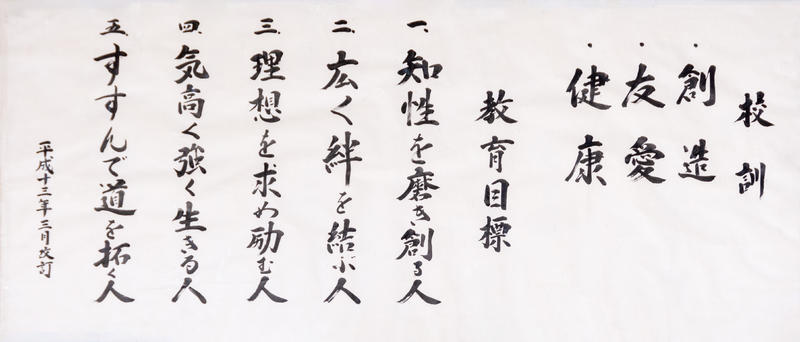 校訓
・創造
・友愛
・健康
教育目標
一、知性を磨き創る人
二、広く絆を結ぶ人
三、理想を求め励む人
四、気高く強く生きる人
五、すすんで道を拓く人
平成十三年三月改訂